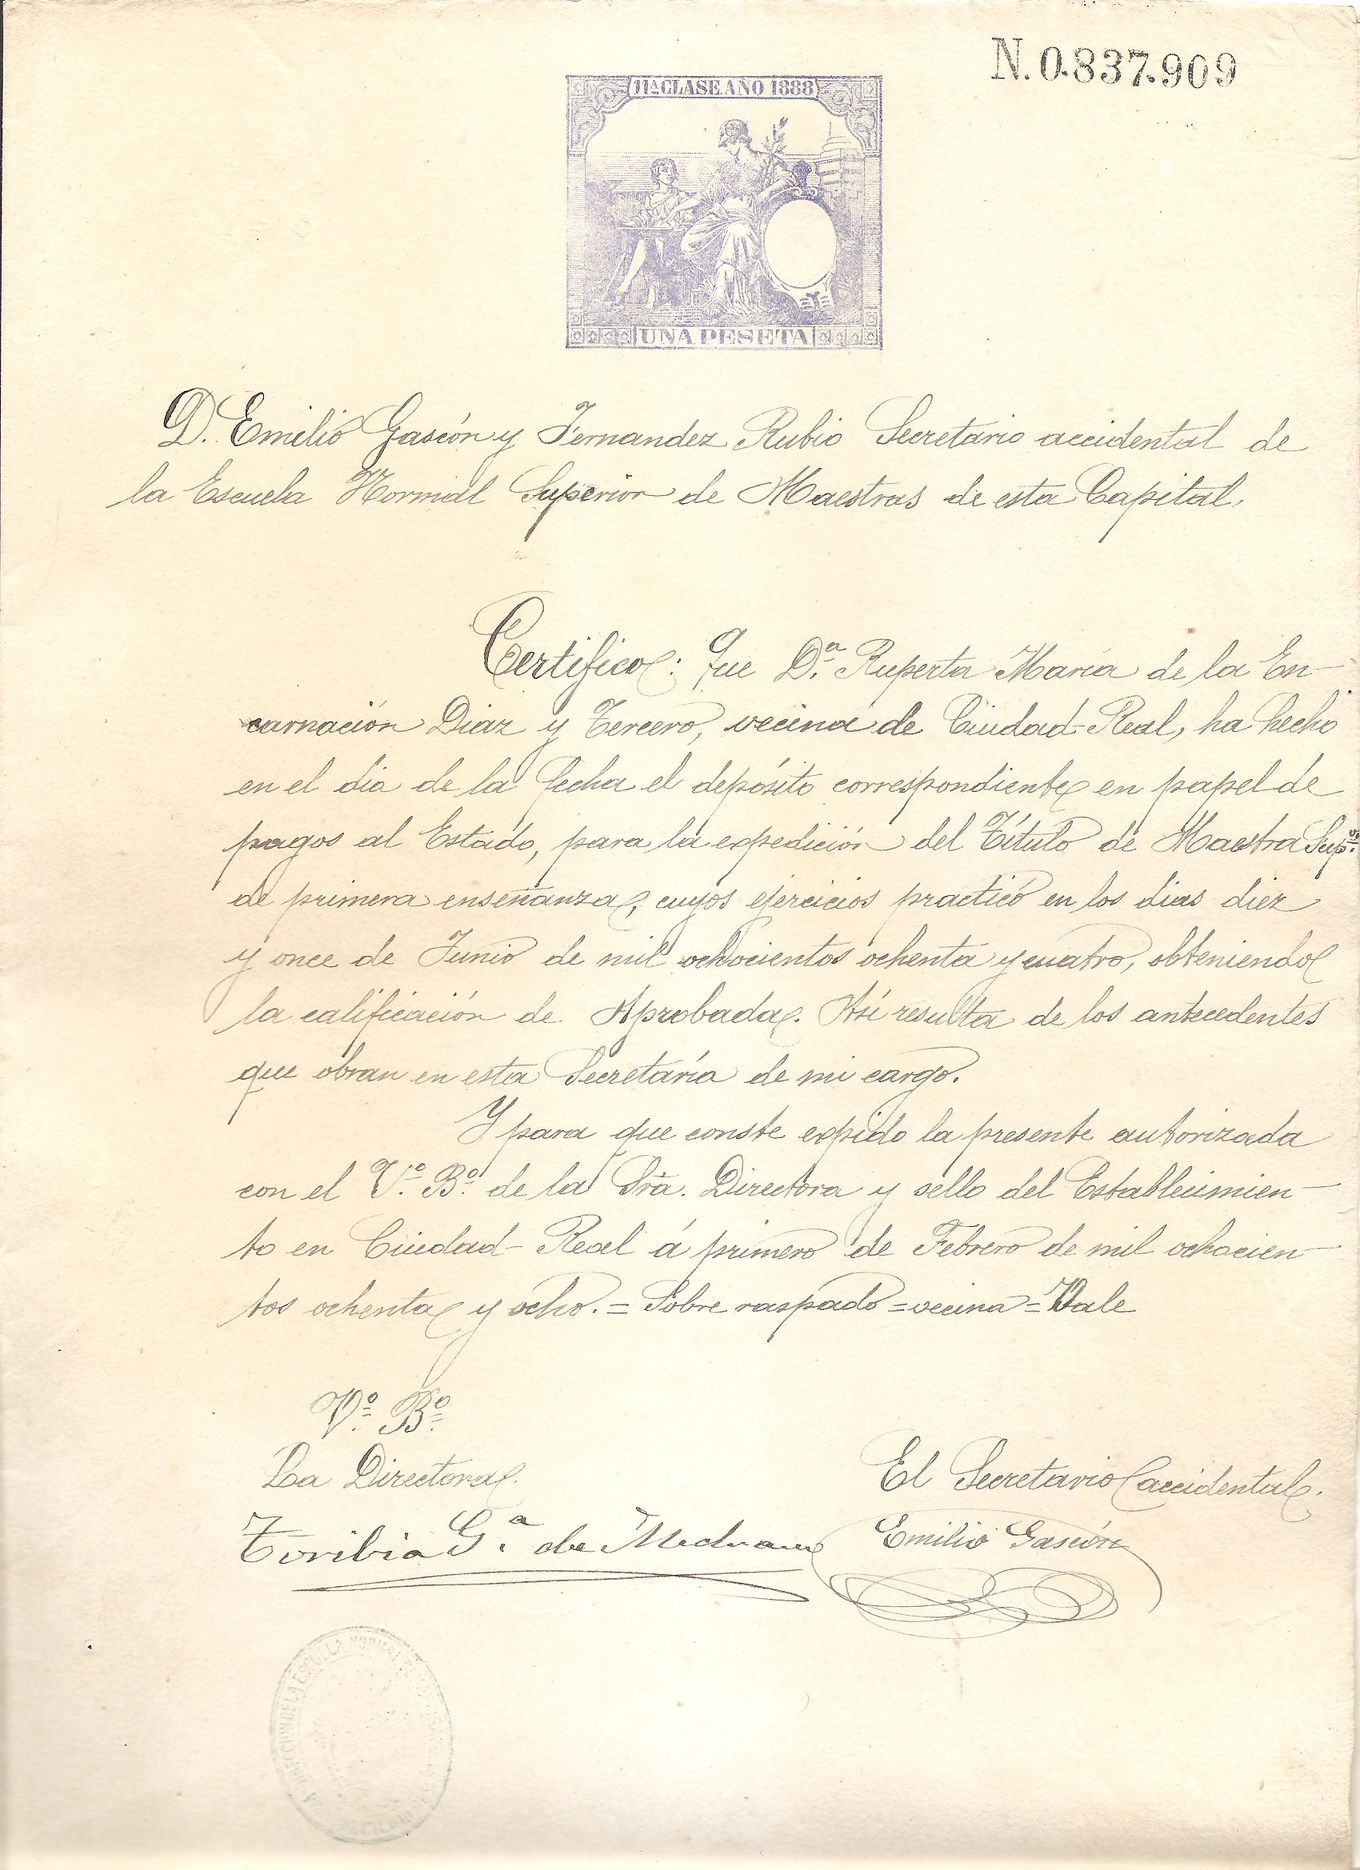 N. 0.837.909
11ª CLASE AÑO 1888
UNA PESETA
D. Emilio Gascón y Fernandez Rubio Secretario accidental de
la Escuela Normal Superior de Maestras de esta Capital,
Certifico: Que Dª. Ruperta María de la En-
carnación Diaz y Tercero, vecina de Ciudad-Real, ha hecho
en el dia de la fecha el depósito correspondiente en papel de
pagos al Estado, para la expedición del Título de Maestra Supʳ.
de primera enseñanza, cuyos ejercicios practicó en los dias diez
y once de Junio de mil ochocientos ochenta y cuatro, obteniendo
la calificación de Aprobada. Así resulta de los antecedentes
que obran en esta Secretaría de mi cargo.
Y para que conste expido la presente autorizada
con el Vº. Bº. de la Srª. Directora y sello del Establecimien-
to en Ciudad-Real á primero de Febrero de mil ochocien-
tos ochenta y ocho. = Sobre raspado = vecina = Vale
Vº. Bº.
La Directora.
El Secretario accidental.
Toribia G.ª de
Emilio Gascón
DIRECCION DE LA ESCUELA NORMAL DE